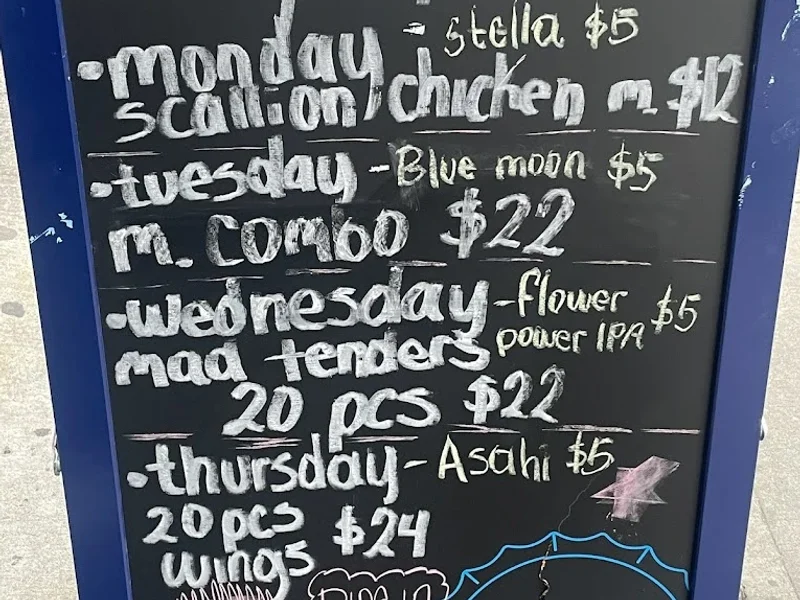 •monday - stella $5
scallion chicken m. $12
•tuesday - Blue moon $5
m. combo $22
•wednesday - flower power IPA $5
mad tenders
20 pcs $22
•thursday - Asahi $5
20 pcs $24
wings